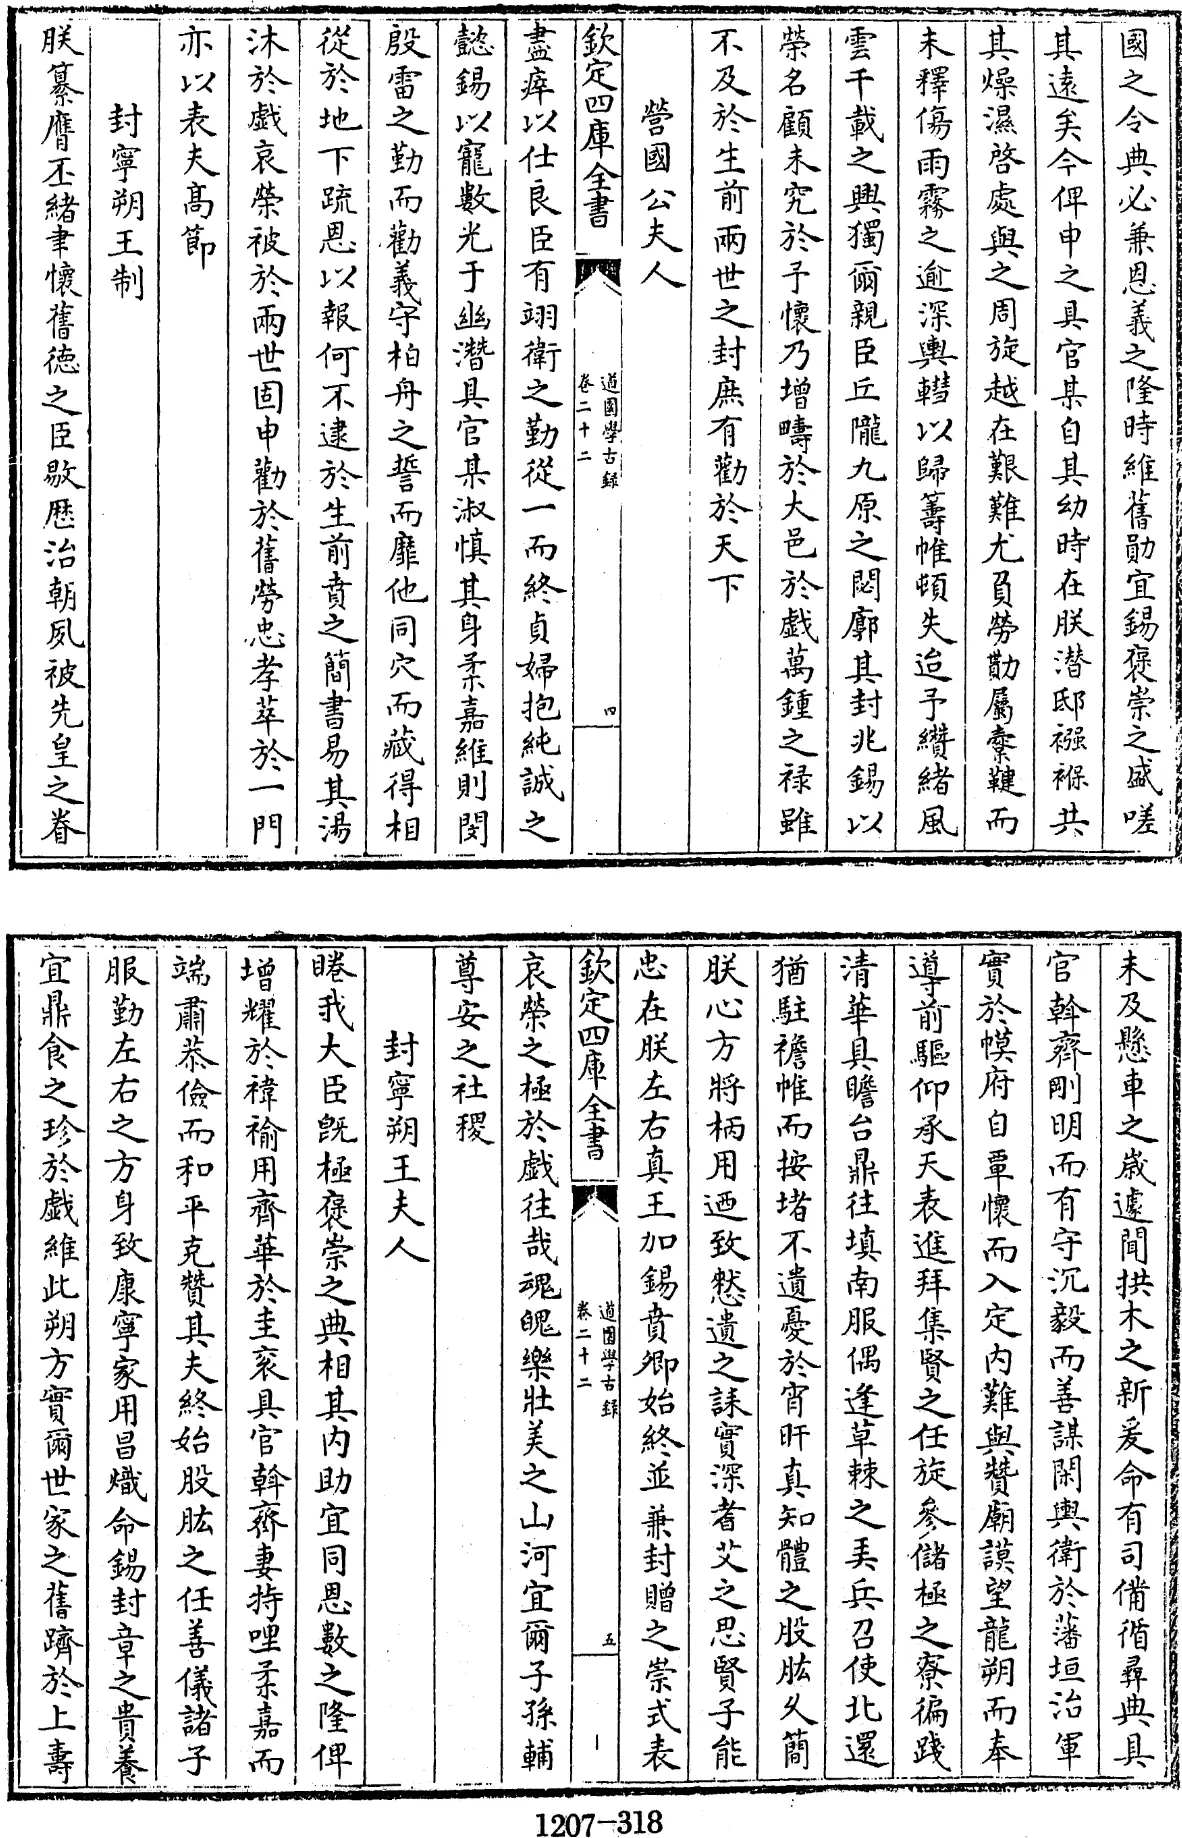 國之令典必兼恩義之隆時維舊勛宜錫褒崇之盛嗟
其遠矣今俾申之具官某自其幼時在朕潛邸襁褓共
其燥濕啓處與之周旋越在艱難尤負勞勩屬櫜鞬而
未釋傷雨霧之逾深輿轊以歸籌帷頓失迨予纘緒風
雲千載之興獨爾親臣丘隴九原之閟廓其封兆錫以
榮名顧未究於予懷乃增疇於大邑於戲萬鍾之祿雖
不及於生前兩世之封庶有勸於天下
營國公夫人
欽定四庫全書
道園學古錄
卷二十二
四
盡瘁以仕良臣有翊衛之勤從一而終貞婦抱純誠之
懿錫以寵數光于幽潛具官某淑慎其身柔嘉維則閔
殷雷之勤而勸義守柏舟之誓而靡他同穴而藏得相
從於地下疏恩以報何不逮於生前賁之簡書易其湯
沐於戲哀榮被於兩世固申勸於舊勞忠孝萃於一門
亦以表夫高節
封寧朔王制
朕纂膺丕緒聿懷舊德之臣敭歷治朝夙被先皇之眷
未及懸車之歲遽聞拱木之新爰命有司備循彞典具
官斡齊剛明而有守沉毅而善謀閑輿衛於藩垣治軍
實於幙府自覃懷而入定內難與贊廟謨望龍朔而奉
導前驅仰承天表進拜集賢之任旋參儲極之寮徧踐
清華具瞻台鼎往填南服偶逢草棘之弄兵召使北還
猶駐襜帷而按堵不遺憂於宵旰真知體之股肱久簡
朕心方將柄用迺致憖遺之誄實深耆艾之思賢子能
忠在朕左右真王加錫賁卿始終並兼封贈之崇式表
欽定四庫全書
道園學古錄
卷二十二
五
哀榮之極於戲往哉魂魄樂壯美之山河宜爾子孫輔
尊安之社稷
封寧朔王夫人
睠我大臣既極褒崇之典相其內助宜同恩數之隆俾
增耀於褘褕用齊華於圭衮具官斡齊妻持哩柔嘉而
端肅恭儉而和平克贊其夫終始股肱之任善儀諸子
服勤左右之方身致康寧家用昌熾命錫封章之貴養
宜鼎食之珍於戲維此朔方實爾世家之舊躋於上壽
1207-318